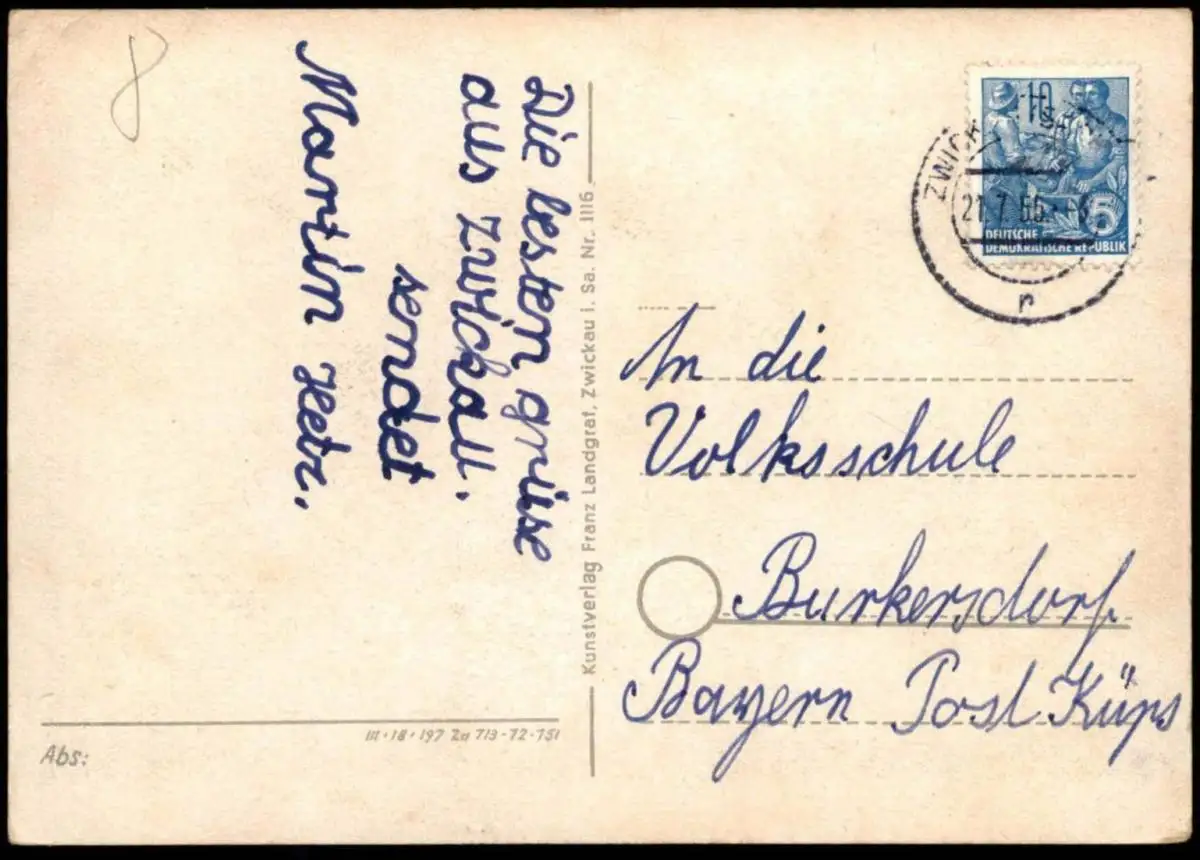 8
Die besten grüsse
aus Zwickau.
sendet
Martin Hetz.
Kunstverlag Franz Landgraf, Zwickau i. Sa. Nr. 1116
III·18·197 Za 713-T2-751
Abs:
10
5
DEUTSCHE
DEMOKRATISCHE REPUBLIK
21.7.55
r
An die
Volksschule
Burkersdorf
Bayern Post Küps